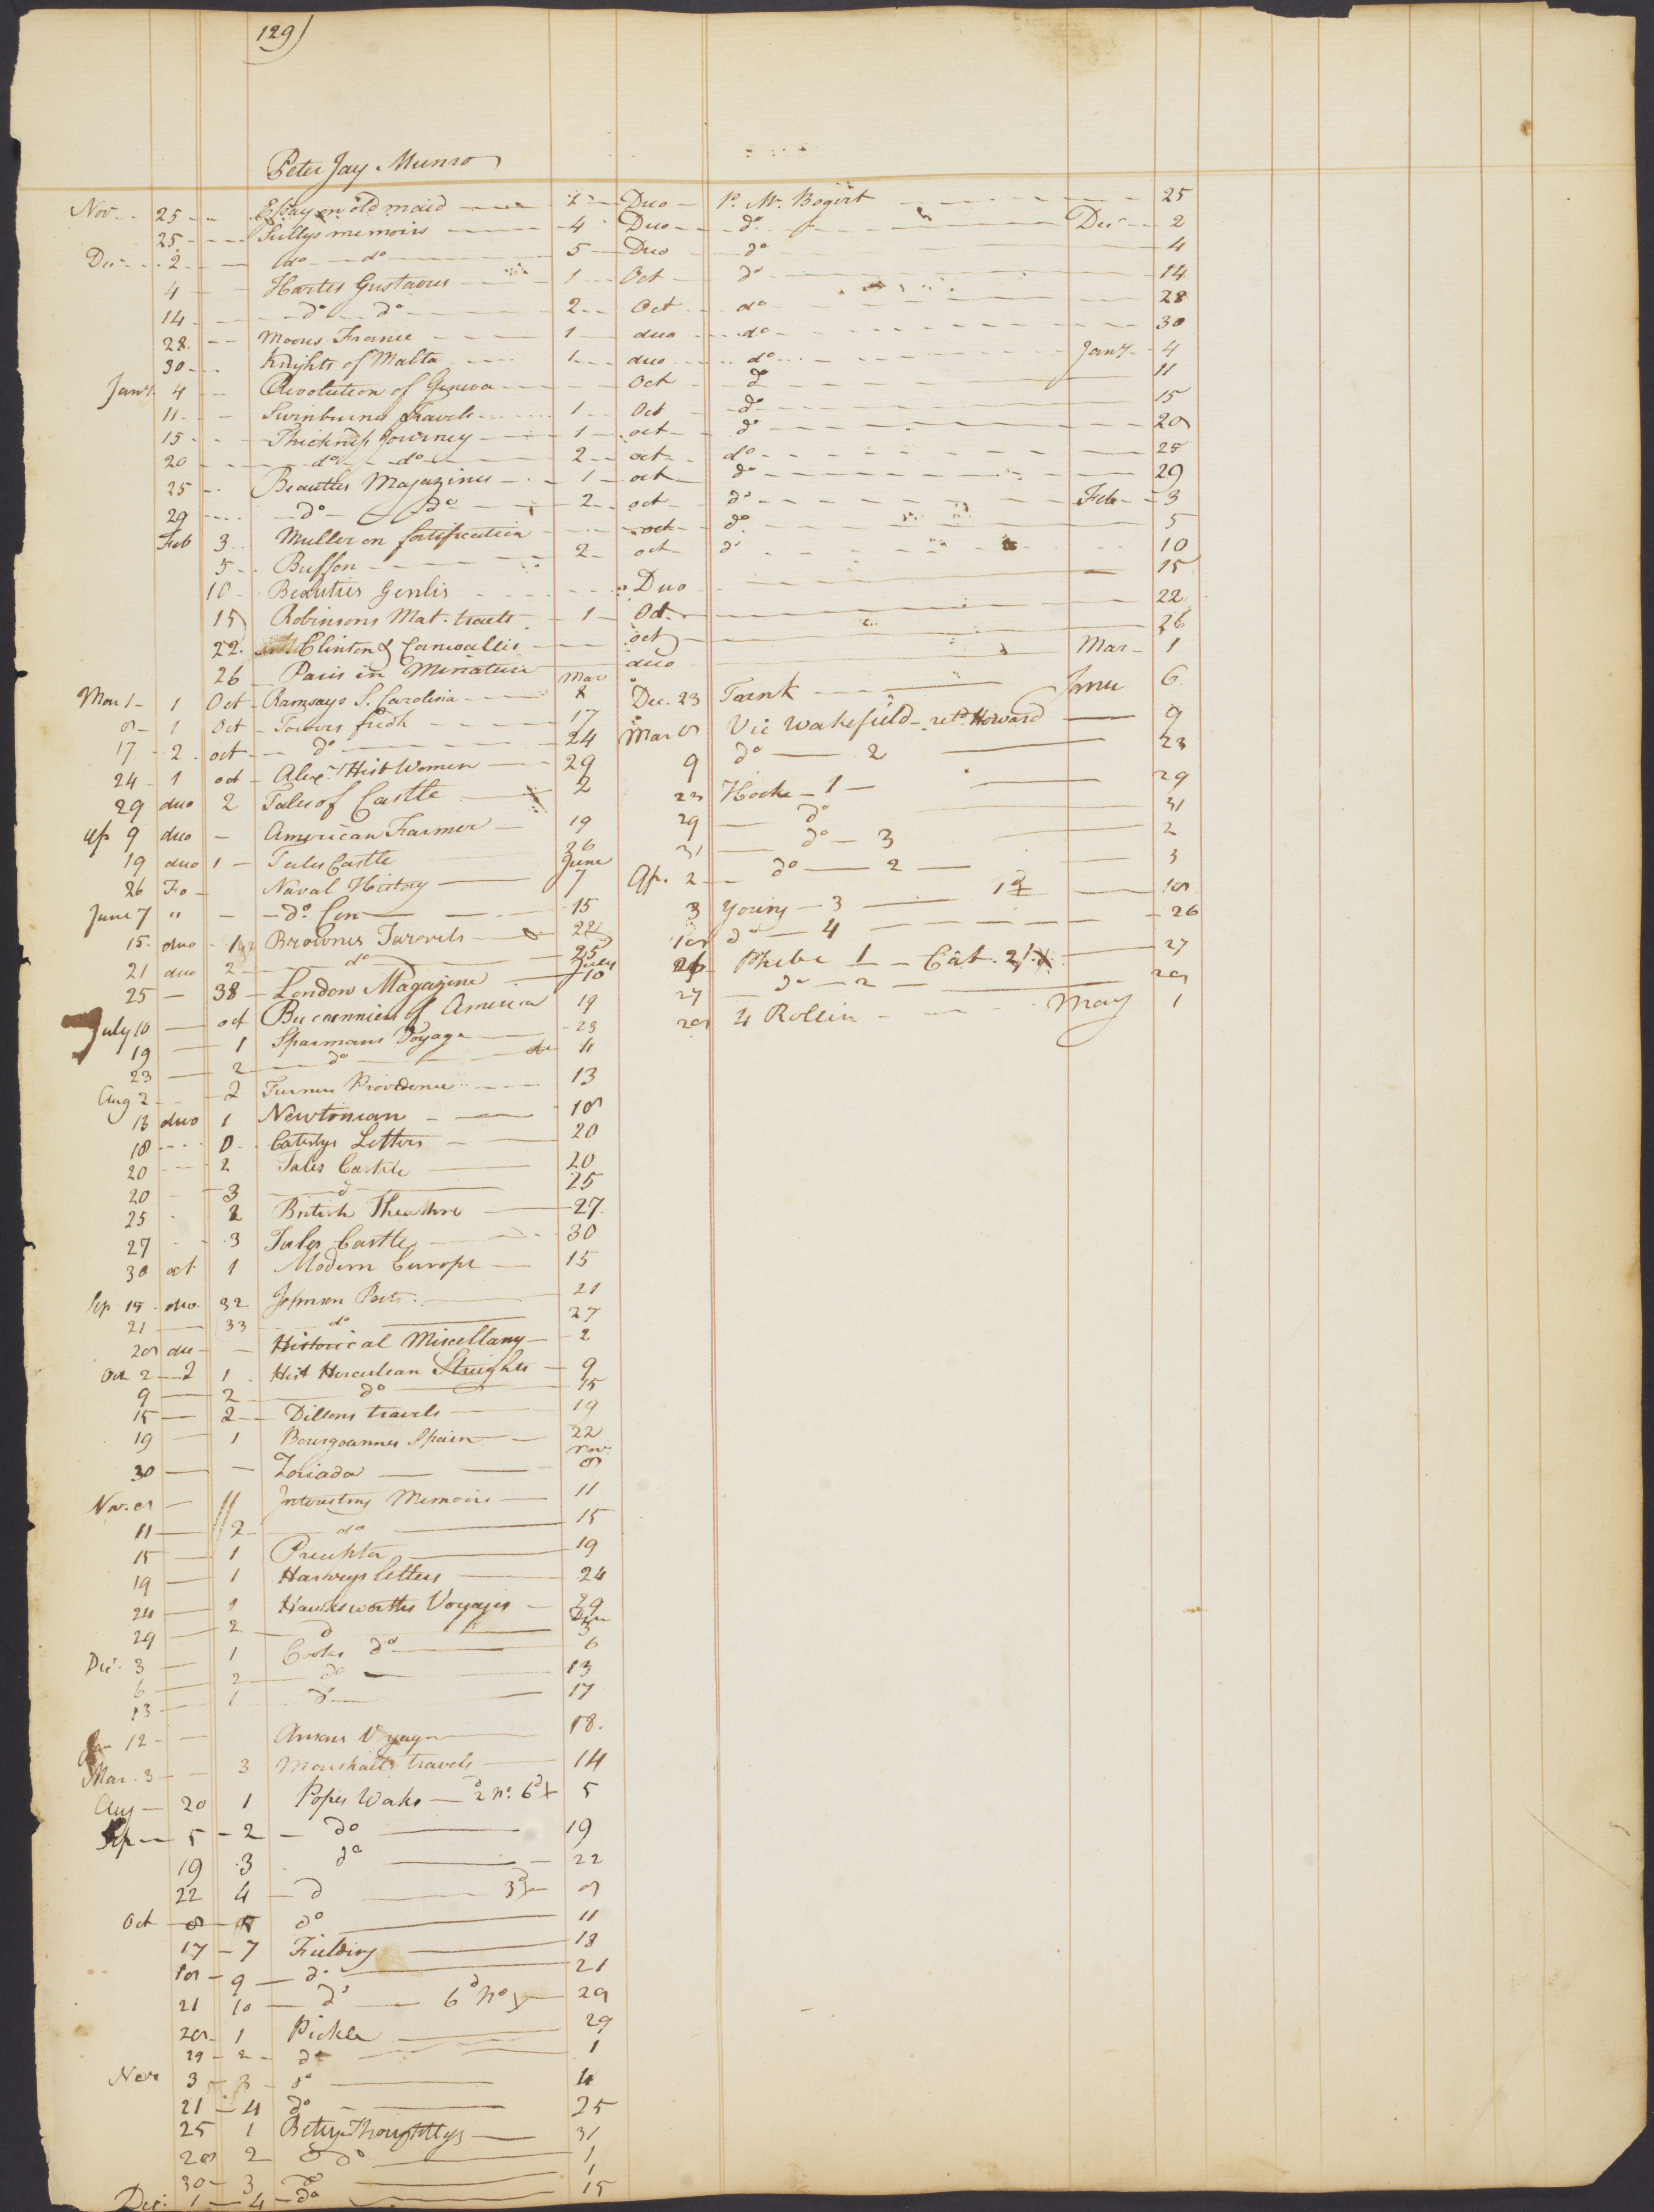 129)
Peter Jay Munro
Nov 25 Essay on old maid 2 Duo P. W. Bogert 25
25 Sullys memoirs 4 Duo do Dec 2
Dec 2 do do 5 Duo do 4
4 Hartes Gustavus 1 Oct do 14
14 do do 2 Oct do 28
28 Moores France 1 duo do 30
30 Knights of Malta 1 duo do Jany 4
Jany 4 Revolution of Geneva Oct do 11
11 Swinburnes Travels 1 Oct do 15
15 Thickness Journey 1 oct do 20
20 do do 2 oct do 25
25 Beauties Magazines 1 oct do 29
29 do do 2 oct do Feb 3
Feb 3 Muller on fortification oct do 5
5 Buffon 2 oct do 10
10 Beauties Genlis Duo 15
15 Robinsons Mat. tracts 1 Oct 22
22 Clinton & Cornwallis oct 26
26 Paris in Miniature duo Mar 1
Mar 1 1 Oct Ramsays S. Carolina Mar 8 Dec. 23 Trenk Janu 6
8 1 Oct Towers fredk 17 Mar 8 Vic Wakefield retd Howard 9
17 2 oct do 24 9 do 2 23
24 1 oct Alexr Hist Women 29 23 Hooke 1 29
29 duo 2 Tales of Castle 2 29 do 31
Ap 9 duo American Farmer 19 31 do 3 2
19 duo 1 Tales Castle 26 Ap. 2 do 2 3
26 Fo Naval History June 7 3 Young 3 18
June 7 " do Con 15 18 do 4 26
15 duo 1 Brownes Travels 22 26 Phebe 1 Cat. 27
21 duo 2 do 25 27 do 2 28
25 38 London Magazine July 10 28 4 Rollin May 1
July 10 oct Bucannies of America 19
19 1 Sparmans Voyage 23
23 2 do 11
Aug 2 2 Turner Providence 13
13 duo 1 Newtonian 18
18 Catesbys Letters 20
20 2 Tales Castle 20
20 3 do 25
25 2 British Theathre 27
27 3 Tales Castle 30
30 oct 1 Modern Europe 15
Sep 15 duo 32 Johnson Poets 21
21 33 do 27
28 duo Historical Miscellany 2
Oct 2 2 1 Hist Herculean Streights 9
9 2 do 15
15 2 Dillons travels 19
19 1 Bourgoannes Spain 22
30 Zoriada Nov 8
Nov. 8 Interesting Memoirs 11
11 2 do 15
15 1 Preceptor 19
19 1 Harveys letters 24
24 1 Hawkesworths Voyages 29
29 2 do Dec 3
Dec. 3 1 Cooks do 6
6 2 do 13
13 1 do 17
Jan 12 Ansons Voyage 18
Mar. 3 3 Marshalls travels 14
Aug 20 1 Popes Waks 5
Sep 5 2 do 19
19 3 do 22
22 4 do 8
Oct 8 5 do 11
17 7 Fielding 18
18 9 do 21
21 10 do 28
28 1 Pickle 29
29 2 do 1
Nov 3 3 do 4
21 4 do 25
25 1 Betsy Thoughtlys 31
28 2 do 1
30 3 do 1
Dec. 1 4 do 15